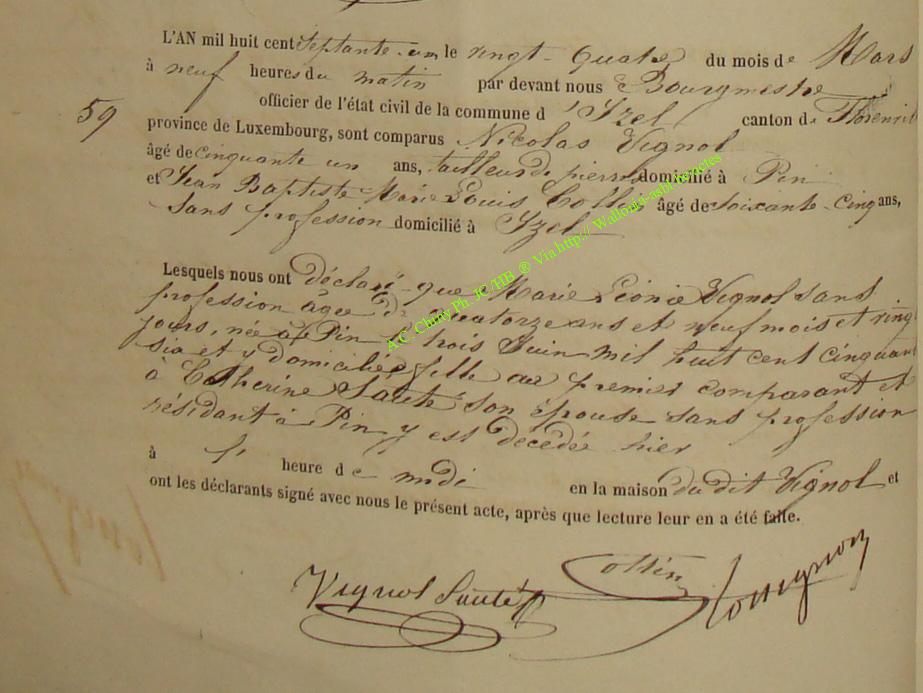 L'AN mil huit cent septante-un le vingt-quatre du mois de Mars
à neuf heures du matin par devant nous Bourgmestre
officier de l'état civil de la commune d'Izel canton de Florenvil
59
province de Luxembourg, sont comparus Nicolas Vignol
âgé de cinquante un ans, tailleur de pierre domicilié à Pin
et Jean Baptiste Marie Louis Collin âgé de soixante-cinq ans,
sans profession domicilié à Izel
Lesquels nous ont déclaré que Marie Léonie Vignol sans
profession âgée de quatorze ans et neuf mois et vingt
jours, née à Pin le trois Juin mil huit cent cinquant
six et y domiciliée, fille du premier comparant et
à Catherine Sauté son épouse sans profession
résidant à Pin y est décédée hier
à l' heure de midi en la maison du dit Vignol et
ont les déclarants signé avec nous le présent acte, après que lecture leur en a été faite.
Vignol Sauté Collin
A.C. Chiny Ph. JC/HB ® Via http://Wallonia-asbl.be/actes